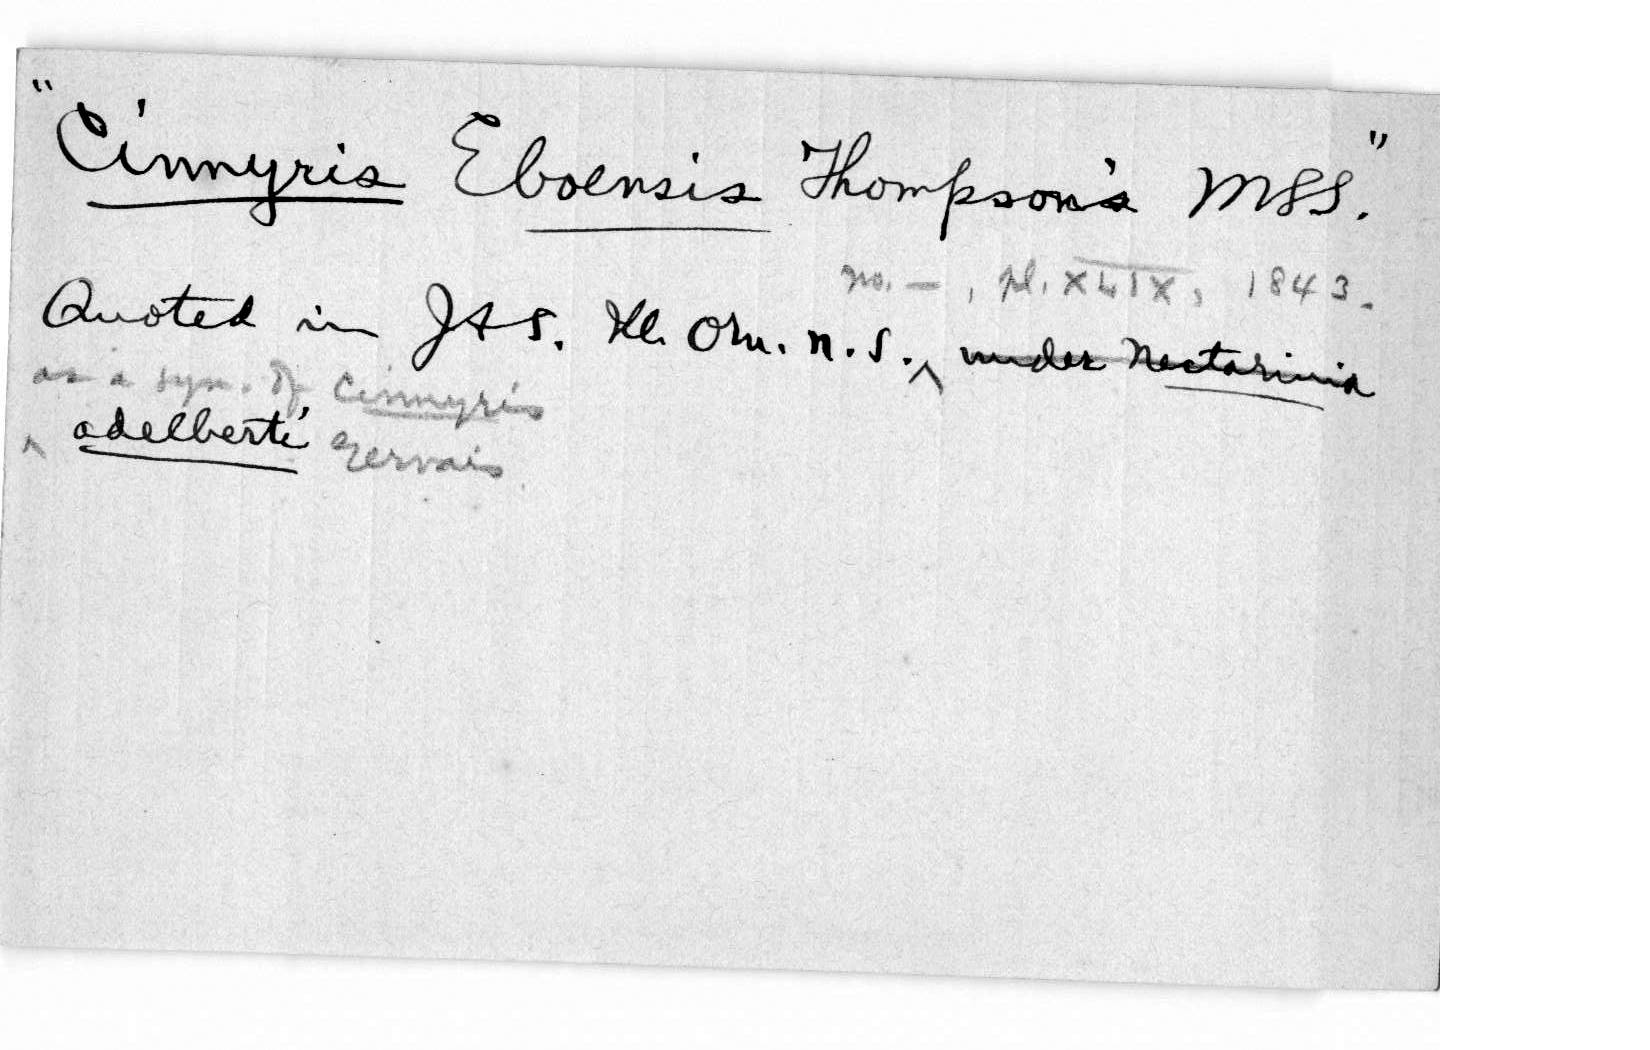 "Cinnyris Eboensis Thompson's MSS."
no. —, pl. XLIX, 1843.
Quoted in J & S. Ill. Orn. n.s. ‸ under Nectarinia
as a syn. of Cinnyris
‸ adelberti Gervais